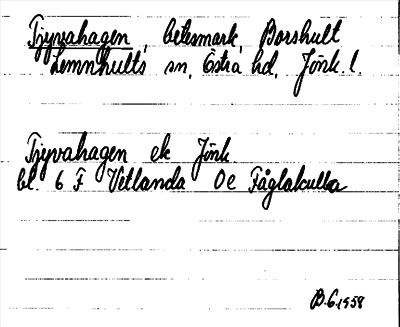 Tjyvahagen, betesmark, Borshult
Lemnhults sn, Östra hd, Jönk. l.
Tjyvahagen ek Jönk
bl. 6 F Vetlanda Oe Fåglakulla
B. G. 1958